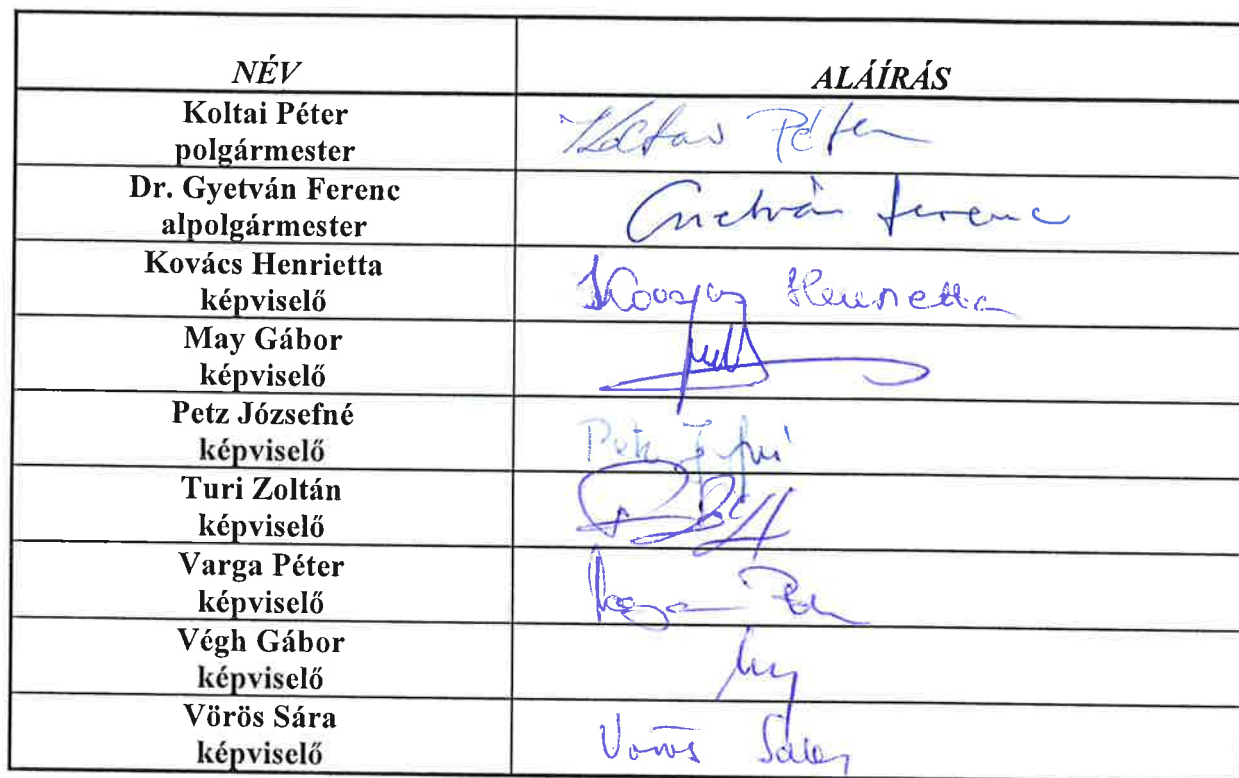 NÉV ALÁÍRÁS
Koltai Péter
polgármester
Koltai Péter
Dr. Gyetván Ferenc
alpolgármester
Gyetván Ferenc
Kovács Henrietta
képviselő
Kovács Henrietta
May Gábor
képviselő
Petz Józsefné
képviselő
Petz Józsefné
Turi Zoltán
képviselő
Varga Péter
képviselő
Varga Péter
Végh Gábor
képviselő
Vörös Sára
képviselő
Vörös Sára